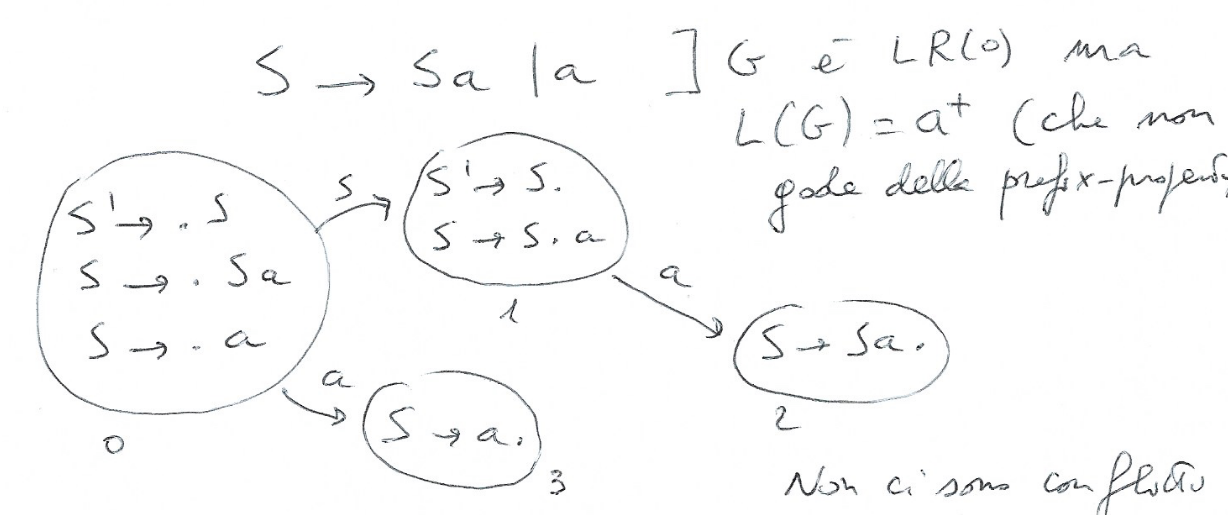 S → Sa | a ] G è LR(0) ma
L(G) = a⁺ (che non
gode della prefix-property
S' → . S
S → . Sa
S → . a
0
S
S' → S.
S → S. a
1
a
S → Sa.
2
a
S → a.
3
Non ci sono conflitti